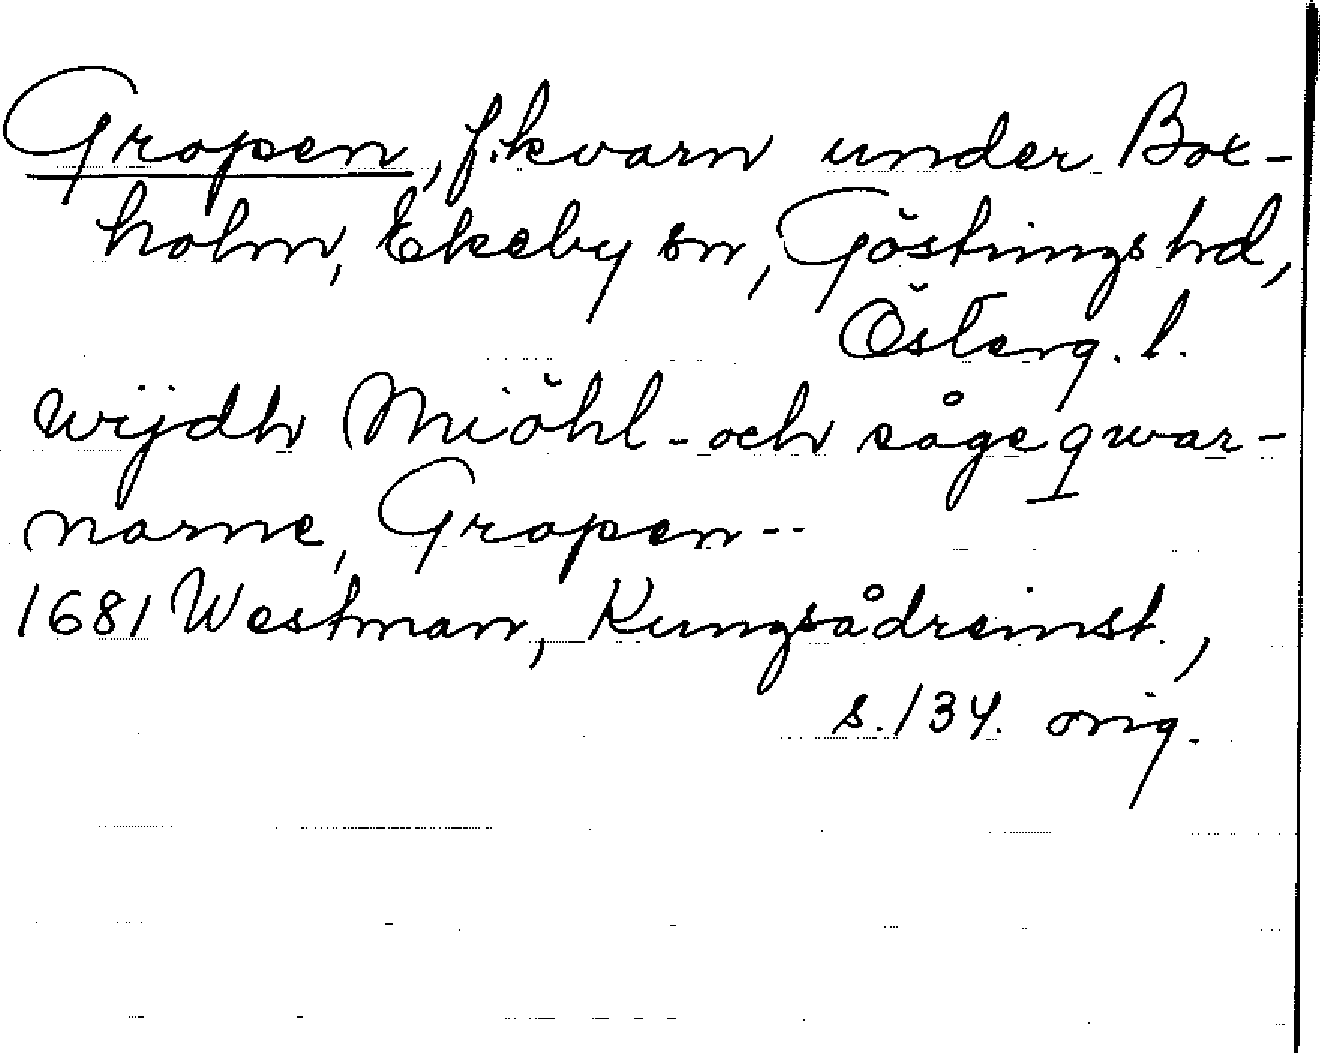 Gropen, f.kvarn under Box-
holm, Ekeby sn, Göstrings hd,
Österg. l.
wijdh Miöhl- och sågeqwar-
narne, Gropen --
1681 Westman, Kungsådreinst.,
s. 134. orig.